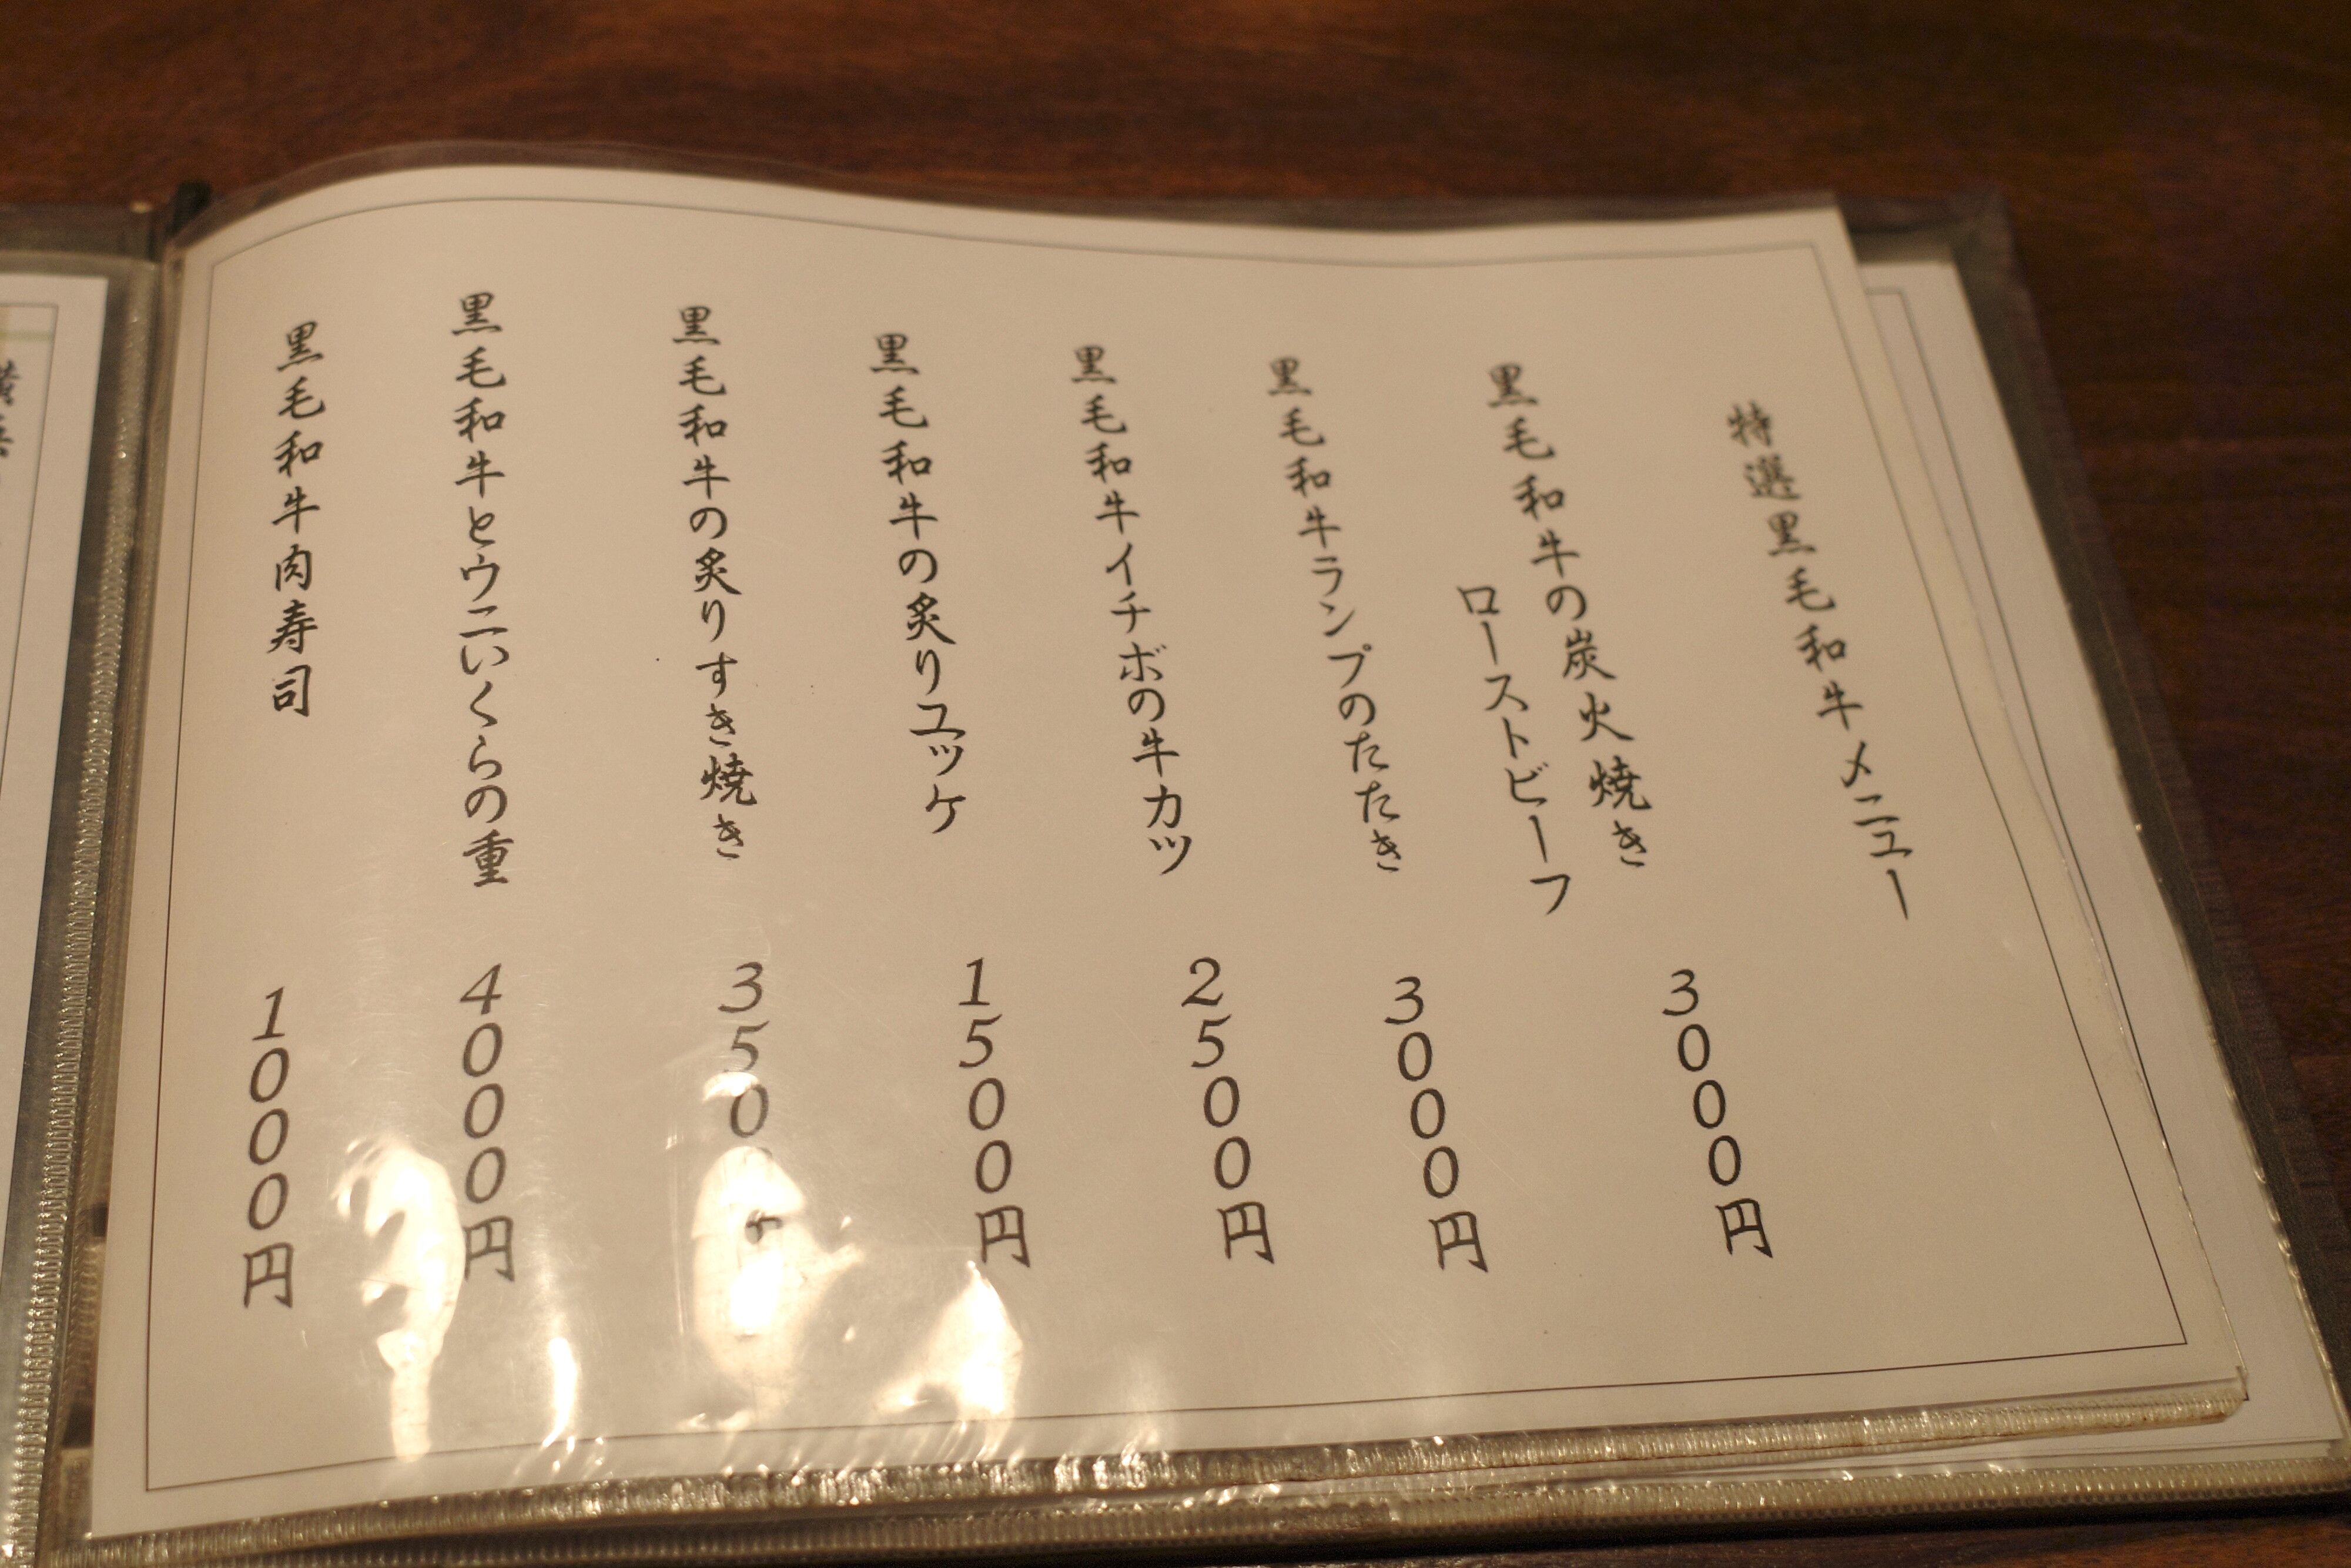 特選黒毛和牛メニュー
黒毛和牛の炭火焼き
ローストビーフ
3000円
黒毛和牛ランプのたたき
3000円
黒毛和牛イチボの牛カツ
2500円
黒毛和牛の炙りユッケ
1500円
黒毛和牛の炙りすき焼き
350
黒毛和牛とウニいくらの重
4000円
黒毛和牛肉寿司
1000円